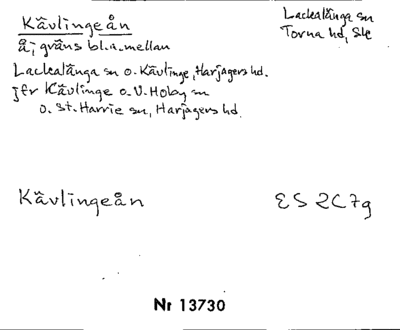 Kävlingeån
Lackalänga sn
Torna hd, Sk
å; gräns bl.a. mellan
Lackalänga sn o. Kävlinge, Harjagers hd.
jfr Kävlinge o. V. Hoby sn
o. St. Harrie sn, Harjagers hd.
Kävlingeån
ES 2C7g
Nr 13730